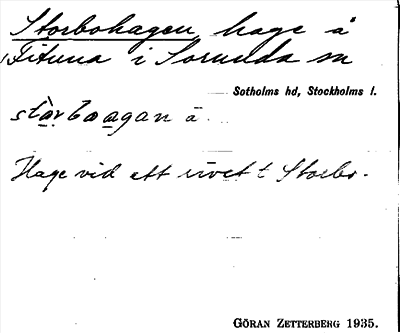 Storbohagen hage å
Fituna i Sorunda sn
Sotholms hd, Stockholms l.
stòrbꙍagan ä
Hage vid ett t Storbo.
GÖRAN ZETTERBERG 1935.